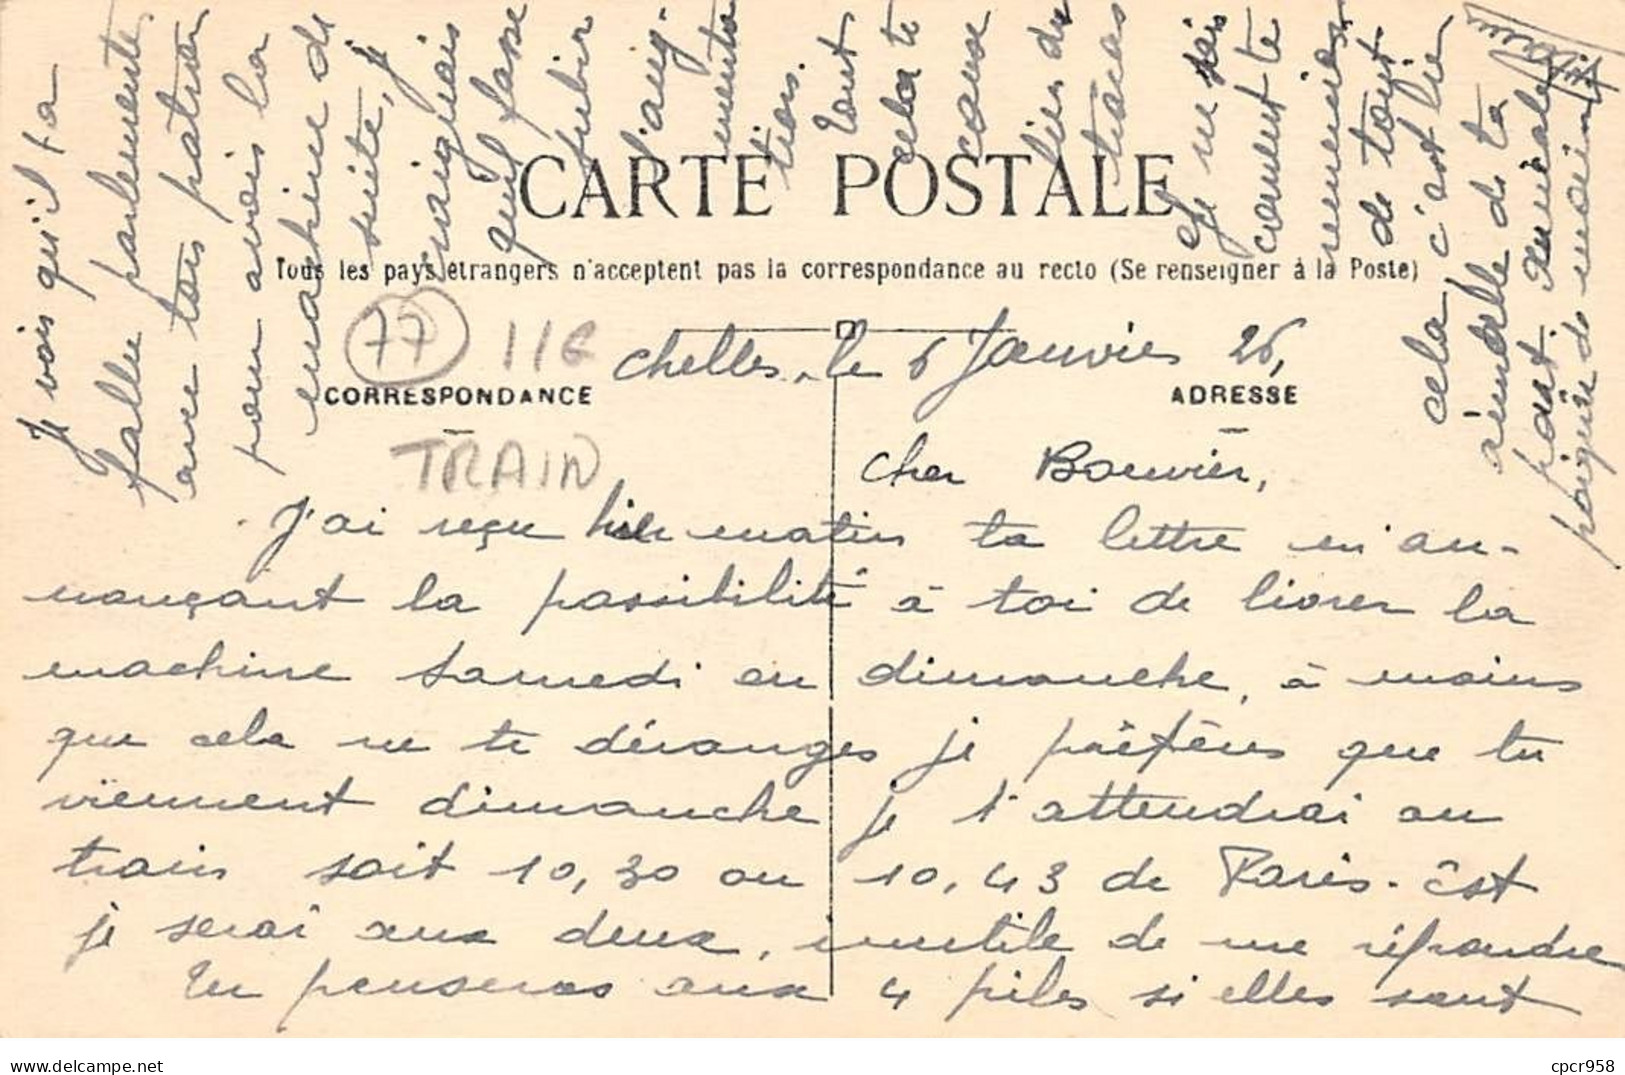 CARTE POSTALE
Tous les pays étrangers n'acceptent pas la correspondance au recto (Se renseigner à la Poste)
77 116
CORRESPONDANCE
ADRESSE
TRAIN
Chelles, le 6 Janvier 26,
Cher Bouvier,
J'ai reçu hier matin ta lettre m'an-
nonçant la possibilité à toi de livrer la
machine samedi ou dimanche, à moins
que cela ne te déranges je préfères que tu
viennent dimanche je t'attendrai au
train soit 10,30 ou 10,43 de Paris. Est
je serai aux deux, inutile de me répondre
Tu penseras aux 4 piles si elles sont
Je vois qu'il t'a
fallu parlementer
avec tois patron
pour avois la
machine de
suite, je
craignais
qu'il fasse
subir
l'aug-
menta
tion.
Tout
cela te
cause
bien du
tracas
Je ne sais
comment te
remercier
de tout
cela c'est bien
aimable de ta
part. Amicale
poignée de main